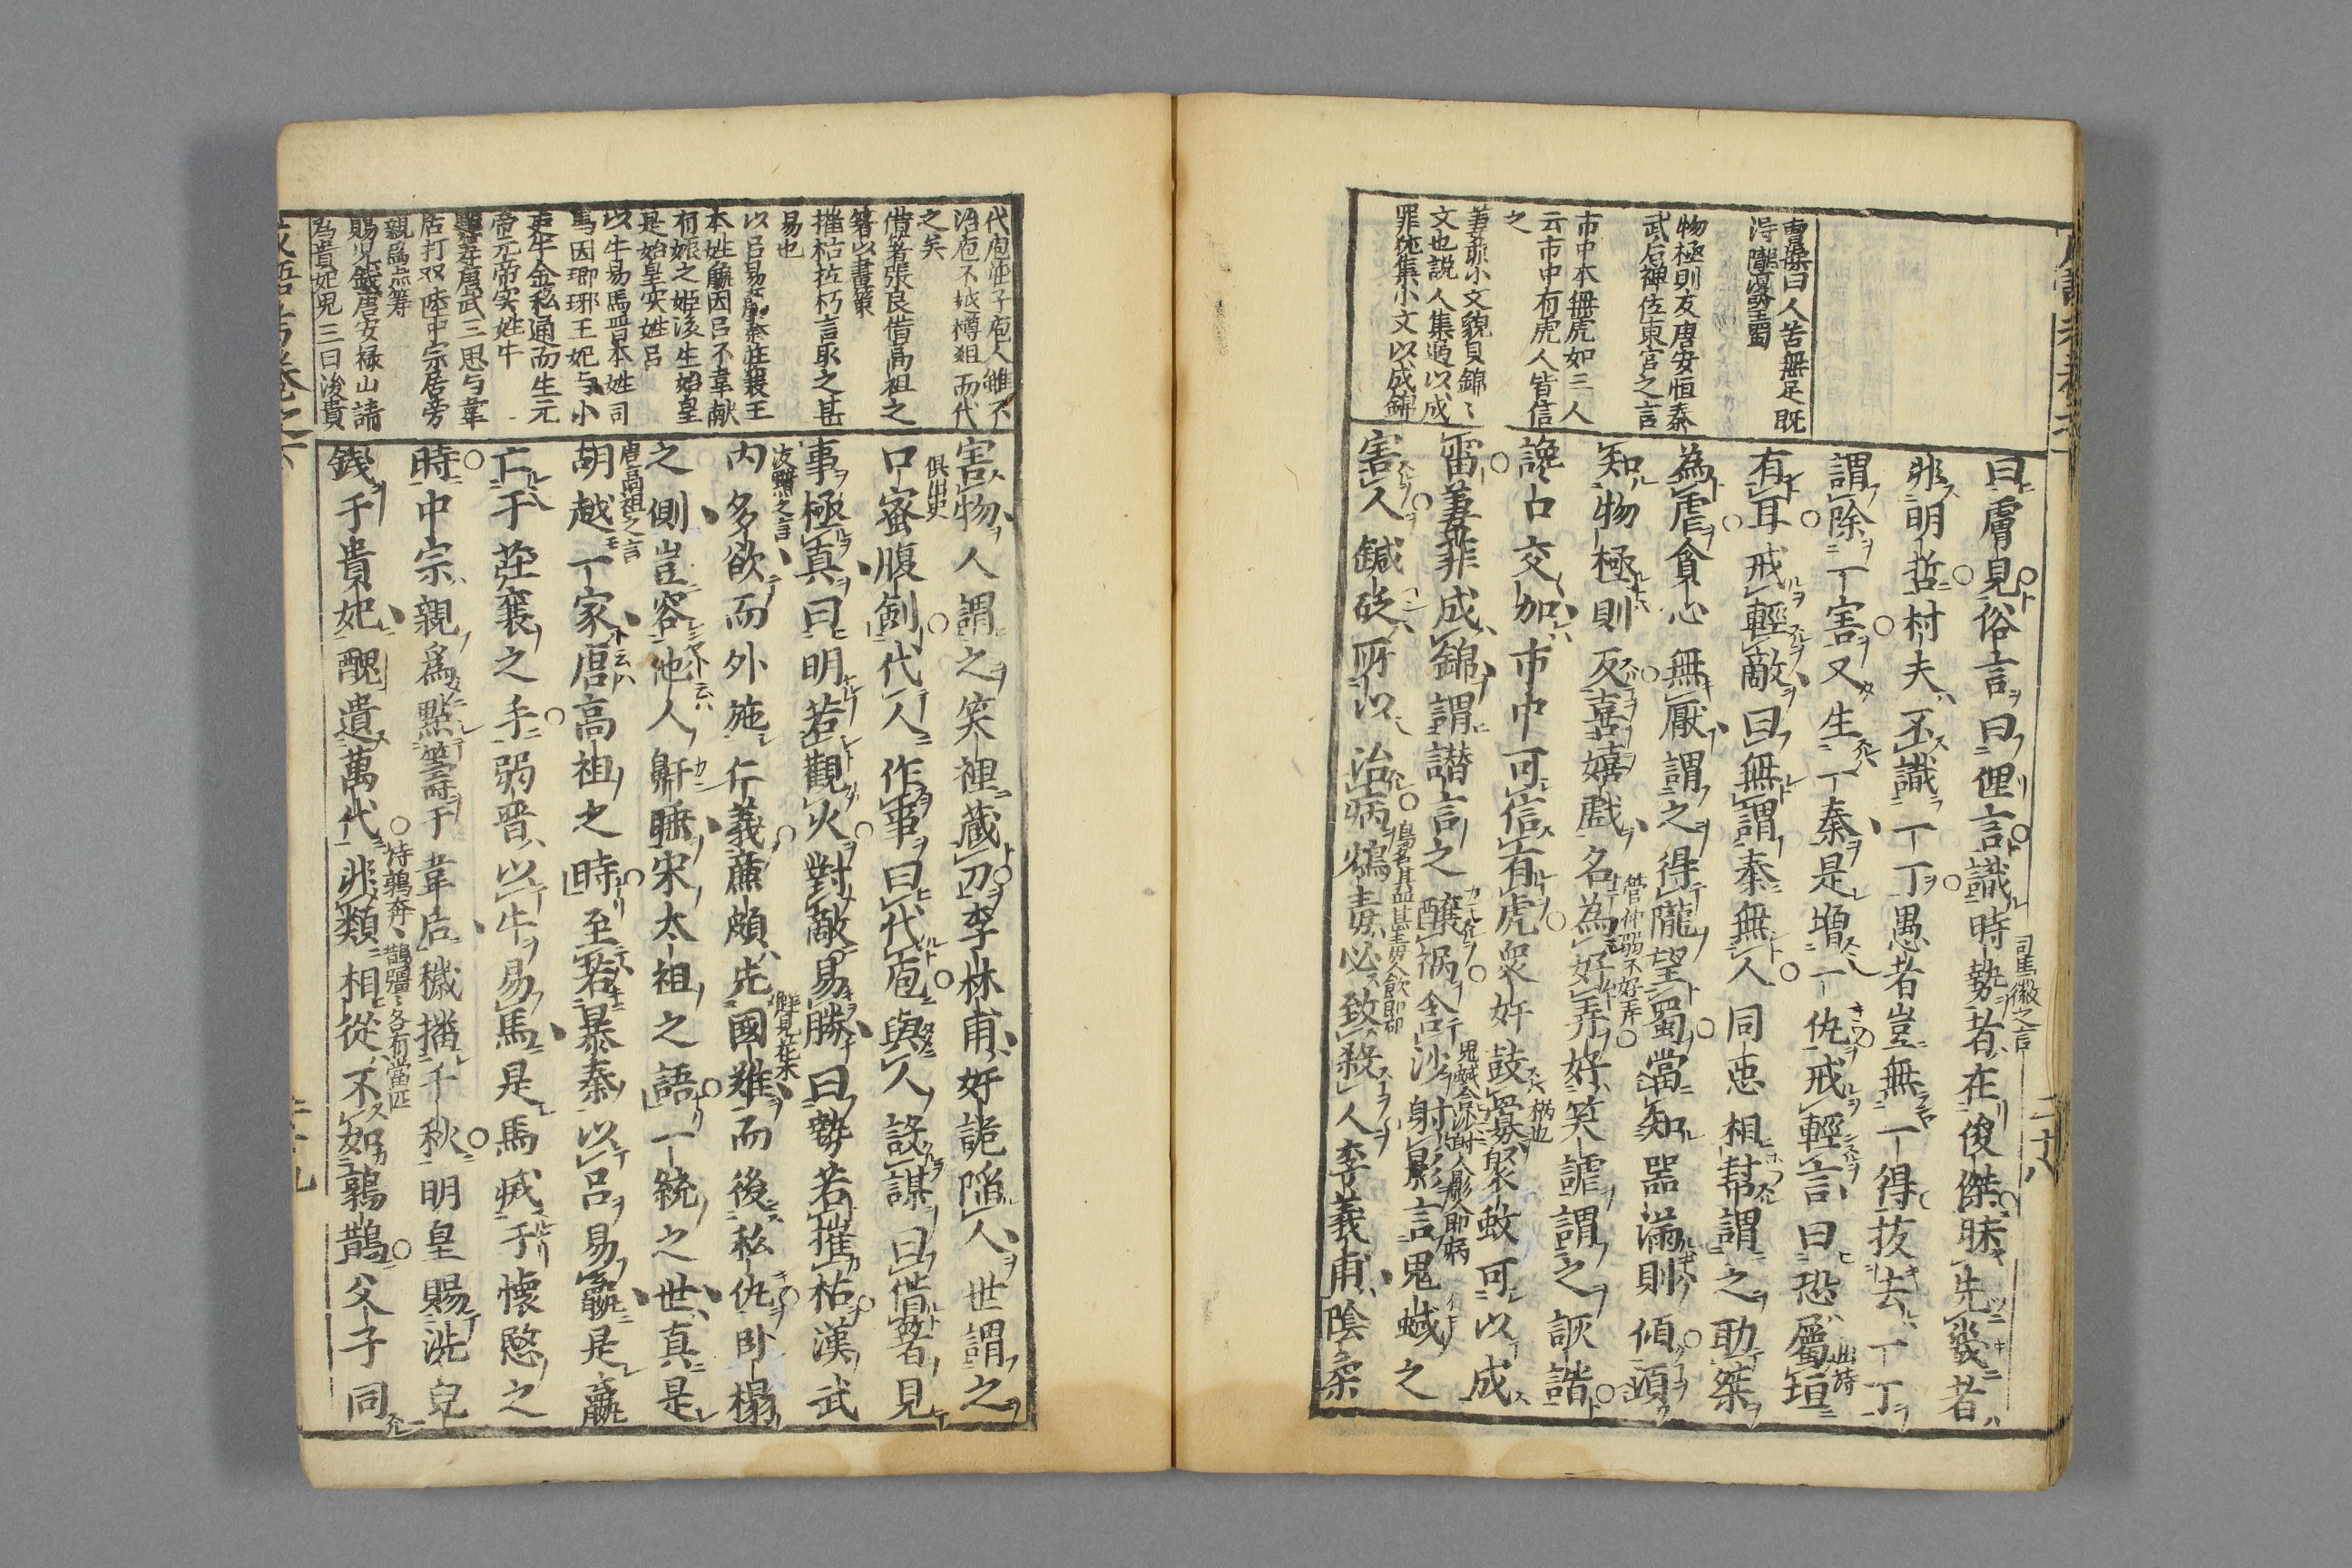 曹操曰人苦無足既
得隴復望蜀
物極則反唐安恒奏
武后禅位東宮之言
市中本無虎如三人
云市中有虎人皆信
之
萋菲小文貌貝錦
文也説人集過以成
罪猶集小文以成錦
曰膚見俗言曰俚言識時勢者在俊傑昧先幾者
司馬徽之言
非明哲村夫不識一丁愚者豈無一得抜去一丁
謂除一害又生一秦是増一仇戒輕言曰恐屬垣
出詩
有耳戒輕敵曰無謂秦無人同惡相幇謂之助桀
為虐貪心無厭謂之得隴望蜀當知器滿則傾須
知物極則反喜嬉戯名為好弄好笑謔謂之詼諧
管仲弱不好弄
讒口交加市中可信有虎衆奸鼓釁聚蚊可以成
雷萋菲成錦謂譖言之醸禍含沙射影言鬼蜮之
鬼蜮含沙射人影人即病
害人鍼砭所以治病鴆毒必致殺人李義甫陰柔
鴆鳥名其血甚毒人飲即死
代庖莊子庖人雖不
治庖不越樽俎而代
之矣
借箸張良借高祖之
箸以畫策
摧枯拉朽言取之甚
易也
以呂易嬴秦莊襄王
本姓嬴因呂不韋献
有娠之姫後生始皇
是始皇実姓呂
以牛易馬晋本姓司
馬因瑯琊王妃与小
吏牛金私通而生元
帝元帝実姓牛
點筹唐武三思与韋
后打双陸中宗居旁
親爲点筹
賜洗兒錢唐安禄山請
為貴妃兒三日後貴
害物人謂之笑裡蔵刀李林甫好詭陥人世謂之
口蜜腹劍代人作事曰代庖與人設謀曰借箸見
俱出史
事極真曰明若觀火對敵易勝曰勢若摧枯漢武
内多欲而外施仁義廉頗先國難而後私仇卧榻
汲黯之言
解見花木
之側豈容他人鼾睡宋太祖之語一統之世真是
胡越一家唐高祖之時至若暴秦以呂易嬴是嬴
唐高祖之言
亡于莊襄之手弱晋以牛易馬是馬滅于懐愍之
時中宗親爲點籌于韋后穢播千秋明皇賜洗兒
錢于貴妃醜遺萬代非類相從不如鶉鵲父子同
詩鶉奔〻鵲彊〻各有當匹